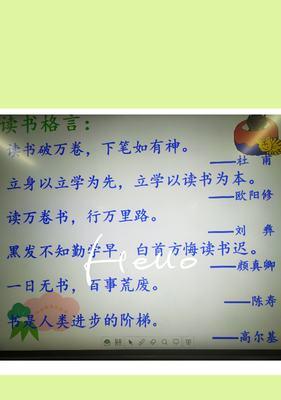 读书格言：
读书破万卷，下笔如有神。
——杜 甫
立身以立学为先，立学以读书为本。
——欧阳修
读万卷书，行万里路。
——刘 彝
黑发不知勤学早，白首方悔读书迟。
——颜真卿
Hello
一日无书，百事荒废。
——陈寿
书是人类进步的阶梯。
——高尔基